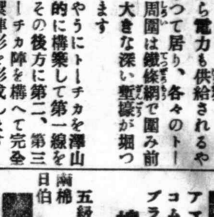 ら電力も供給されるや
つて居り、各々のトー
周囲は鐵條網で囲み前
大きな深い塹壕が堀つ
ます
やうにトーチカを澤山
的に構築して第一線を
その後方に第二、第三
ーチカ陣を構へて完全
アス
コラ
プラ
五録
棉
日伯